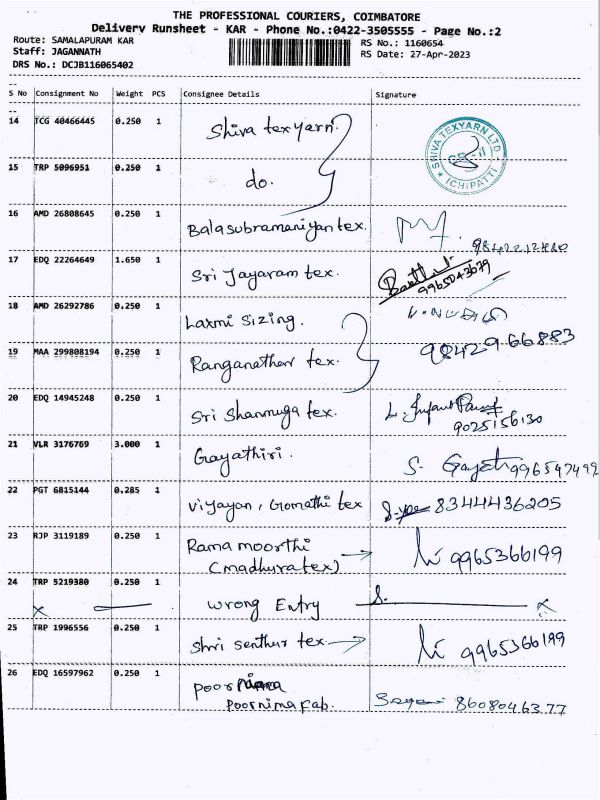 THE PROFESSIONAL COURIERS, COIMBATORE
Delivery Runsheet - KAR - Phone No.:0422-3505555 - Page No.:2
Route: SAMALAPURAM KAR
RS No.: 1160654
Staff: JAGANNATH
RS Date: 27-Apr-2023
DRS No.: DCJB116065402
S No Consignment No Weight PCS Consignee Details Signature
14 TCG 40466445 0.250 1 Shiva texyarn.
SHIVA TEXYARN LTD
ICHIPATTI
15 TRP 5096951 0.250 1 do.
16 AMD 26808645 0.250 1 Balasubramaniyan tex.
17 EDQ 22264649 1.650 1 Sri Jayaram tex. 9965043679
18 AMD 26292786 0.250 1 Laxmi Sizing.
19 MAA 299808194 0.250 1 Ranganathan tex. 9842966883
20 EDQ 14945248 0.250 1 Sri Shanmuga tex. 9025156130
21 VLR 3176769 3.000 1 Gayathiri. S. Gayatri 996547499
22 PGT 6815144 0.285 1 Vijayan, Gomathi tex 8344436205
23 RJP 3119189 0.250 1 Rama moorthi
(madhura tex) 9965366199
24 TRP 5219380 0.250 1
x wrong Entry S. x
25 TRP 1996556 0.250 1 Shri Senthur tex. 9965366199
26 EDQ 16597962 0.250 1
Poornima Fab. 8608046377